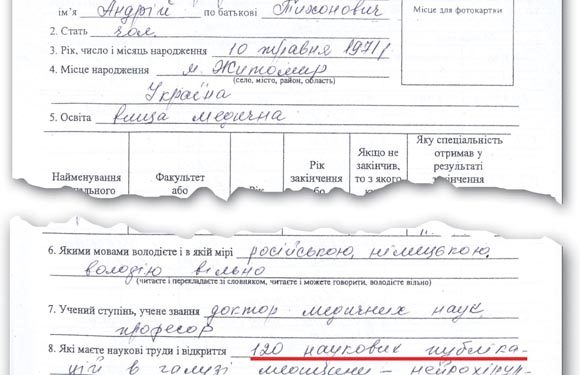 ім'я Андрій по батькові Тихонович
Місце для фотокартки
2. Стать чол.
3. Рік, число і місяць народження 10 травня 1971 р
4. Місце народження м. Житомир
(село, місто, район, область)
Україна
5. Освіта вища медична
Найменування
Факультет або
Рік
Рік закінчення або
Якщо не закінчив, то з якого
Яку спеціальність отримав у результаті закінчення
6. Якими мовами володієте і в якій мірі російською, німецькою,
володію вільно
(читаєте і перекладаєте зі словником, читаєте і можете говорити, володієте вільно)
7. Учений ступінь, учене звання доктор медичних наук
професор
8. Які маєте наукові труди і відкриття 120 наукових публіка-
цій в галузі медицини – нейрохірур-